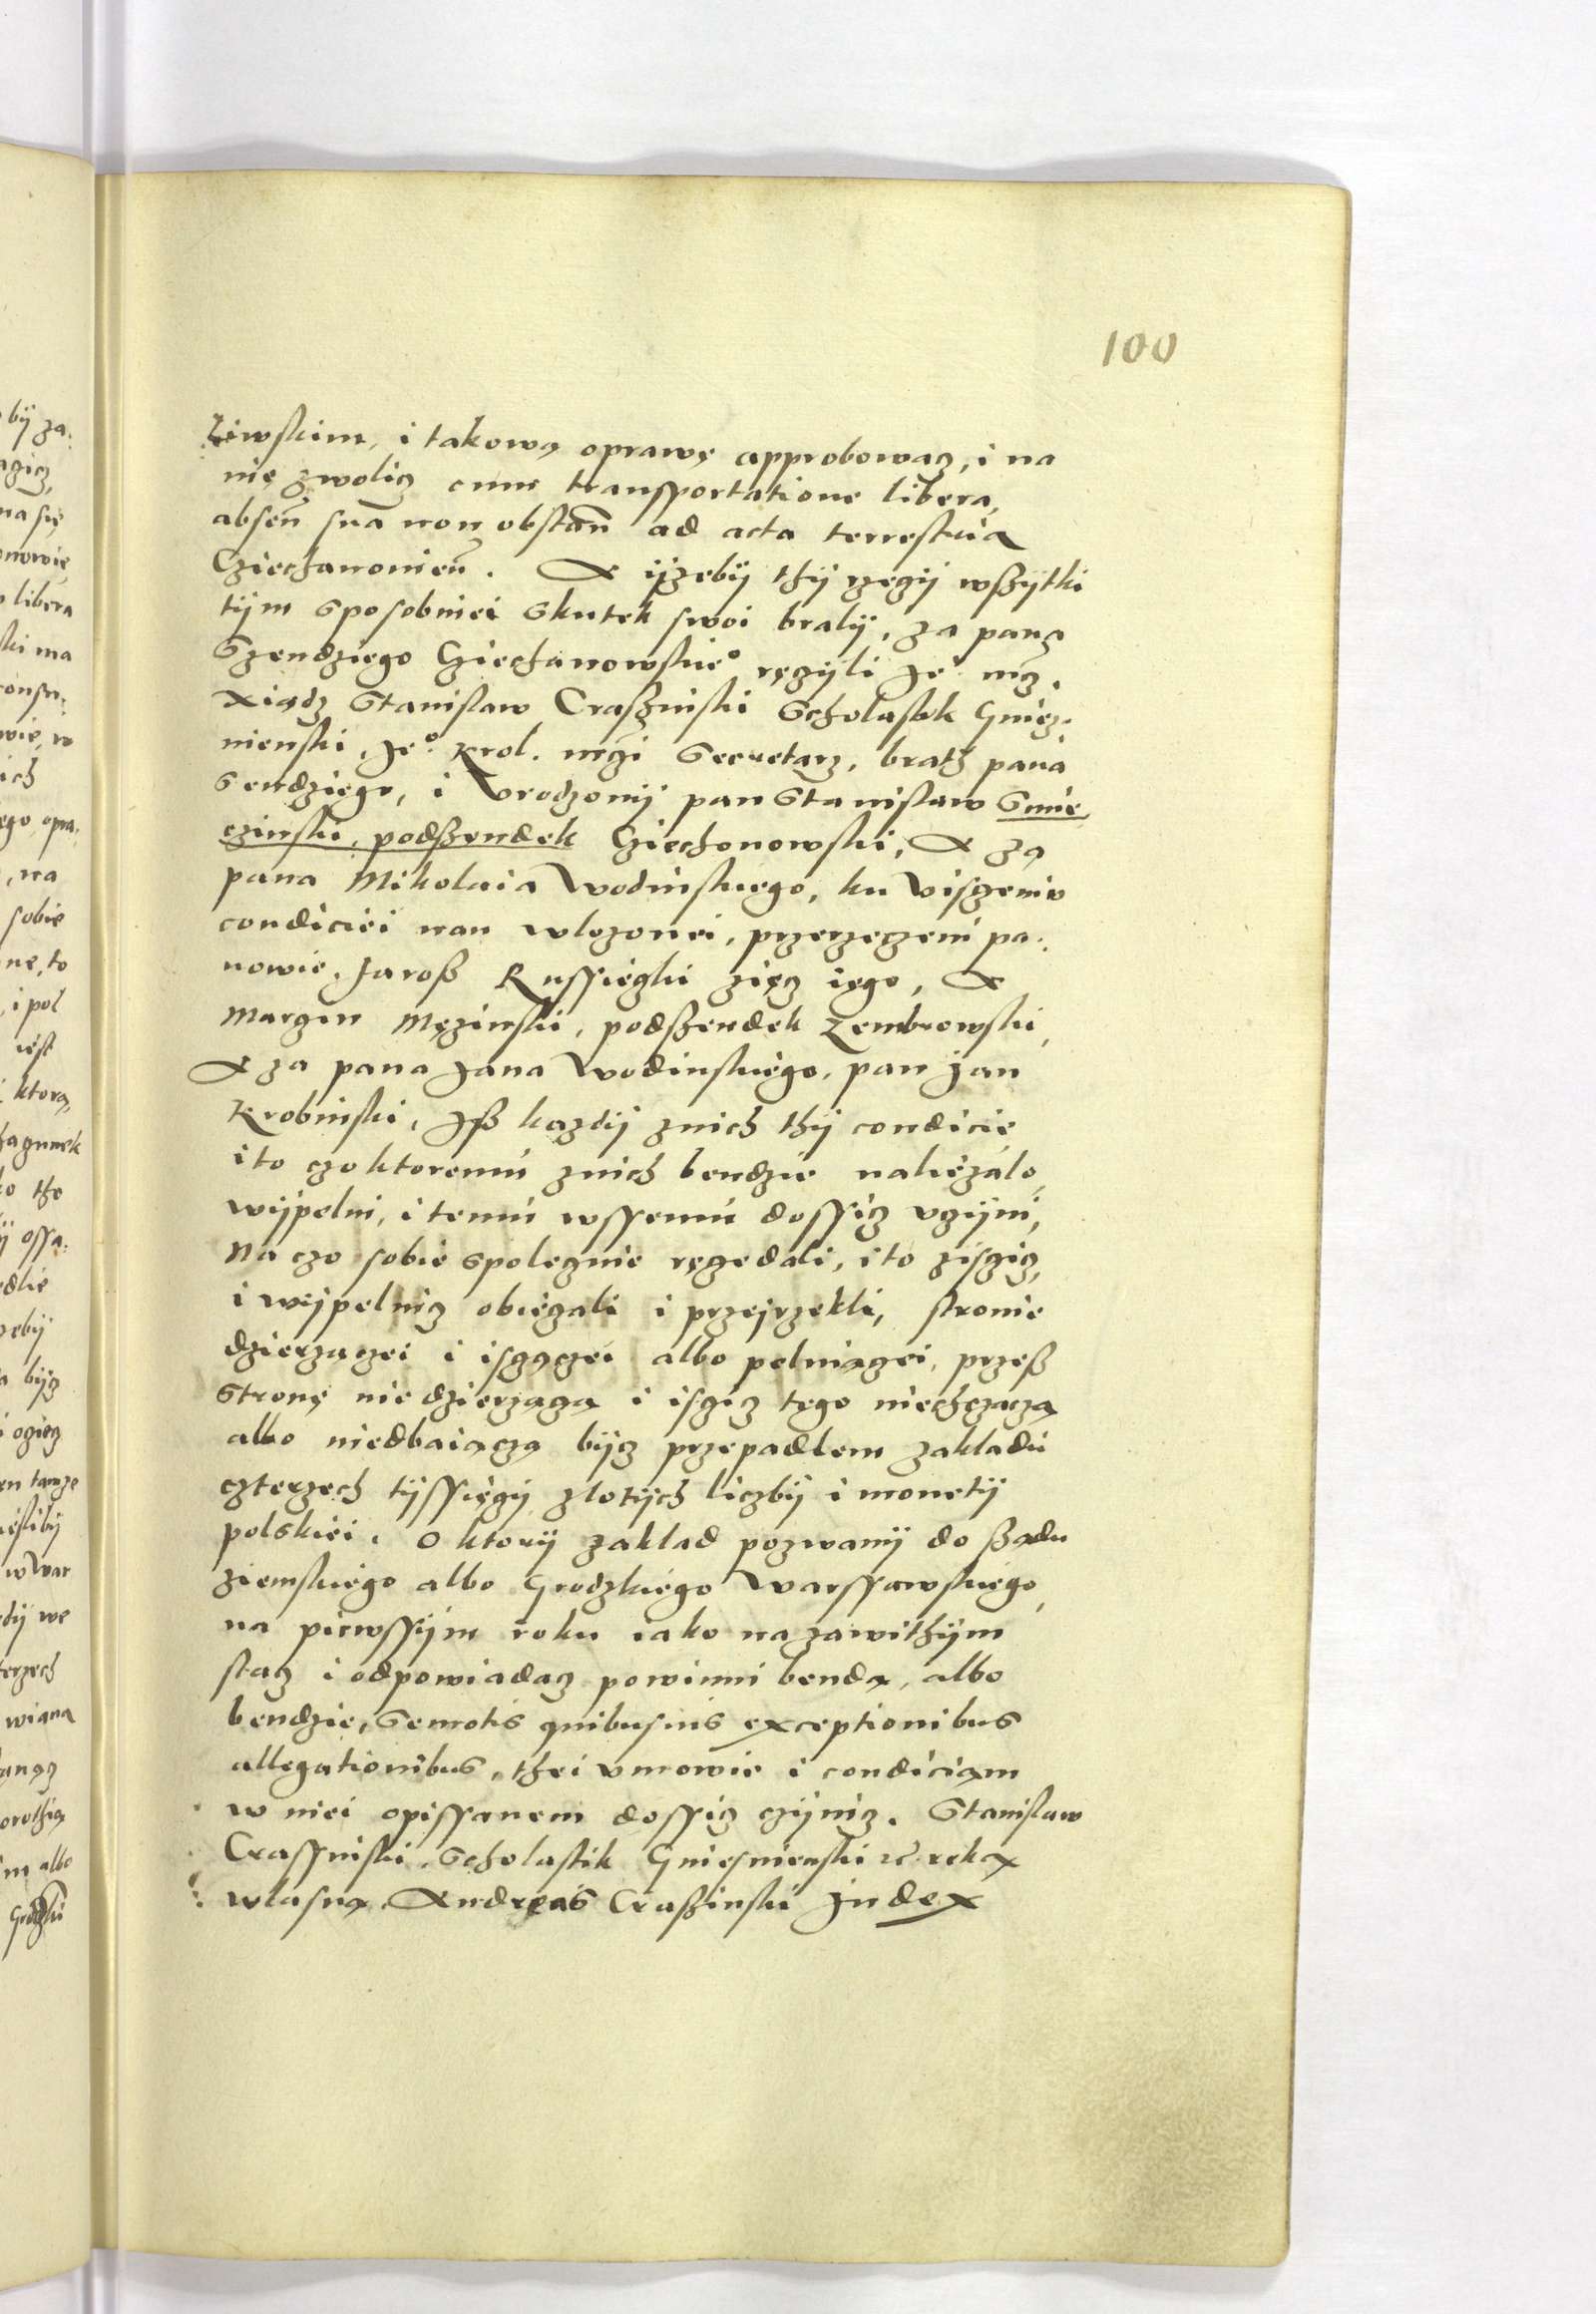 100
Liwskim, i takową oprawę approbowacz, i na
nię zwolicz cum transportatione libera,
absen̄ sua non obstan̄ ad acta terrestria
Cziechanonien̄. A ijzebij thij rzeczij wßzijtki
tijm sposobniei skutek swoi bralij, za pana
Szendziego Cziechanowskieº ręczijli Jeº mcz.
xiądz Stanislaw Craßinski Scholastik Gniez:
nienski, Jeº Krol. mczi Secretarz, brath pana
Sendziego, i Vrodzonij pan Stanislaw Gnie
czinski, podßendek Cziechonowski, A za
pana Mikolaia Wodinskiego, ku Visczeniv
condiciei nan wlozonei, przerzeczeni pa:
nowie, Jaroß Russieczki zięcz iego, A
Marczin Męzinski, podßendek Zembrowski,
A za pana Jana Wodinskiego, pan Jan
Krobinski, Jß kazdij znich thij condicie
i to czo ktoremu znich bendzie naliezalo,
wijpelni, i temu wssemu dossicz vczijni,
Na czo sobie spolecznie ręcze dali, i to zisczicz,
i wijpelnicz obieczali i przejrzekli, stronie
dzierzączei i isczączei albo pelniączei, przeß
stronę nie dzierzącza i isczicz tego niechczącza
albo niedbaiączą bijcz przepadlem zakladu
czterzech tijssięczij zlotijch liczbij i monetij
polskiei. O ktorij zaklad pozwanij do ßądu
ziemskiego albo Grodzkiego Warssawskiego,
na pierwssijm roku iako na zawithijm
stacz i odpowiadacz powinni bendą, albo
bendzie, Semotis quibusuis exceptionibus
allegationibus, thei vmowie i condiciam
w niei opissanem dossicz czijnicz. Stanislaw
Crassinski, Scholastik Gniesnienski ręką
wlasną. Andreas Craßinski Judex